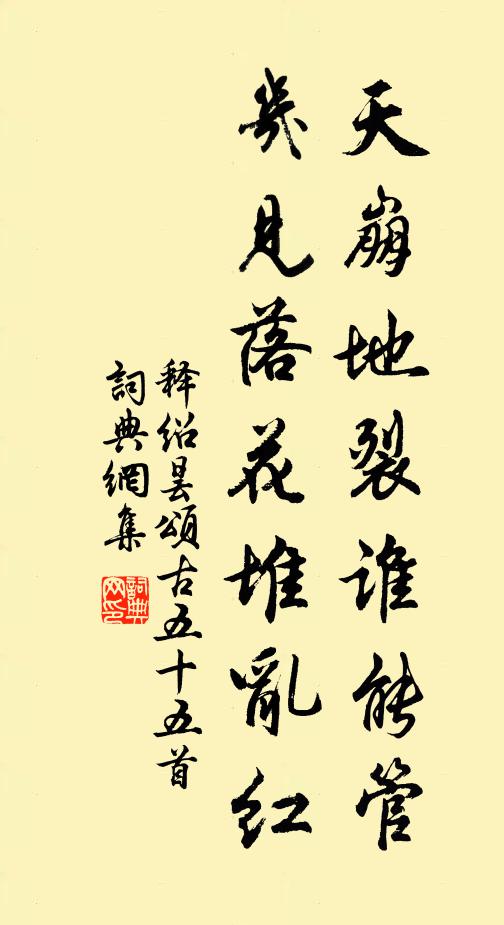 天崩地裂谁能管
几见落花堆乱红
释绍昙颂古五十五首
詞典網集
詞典網印